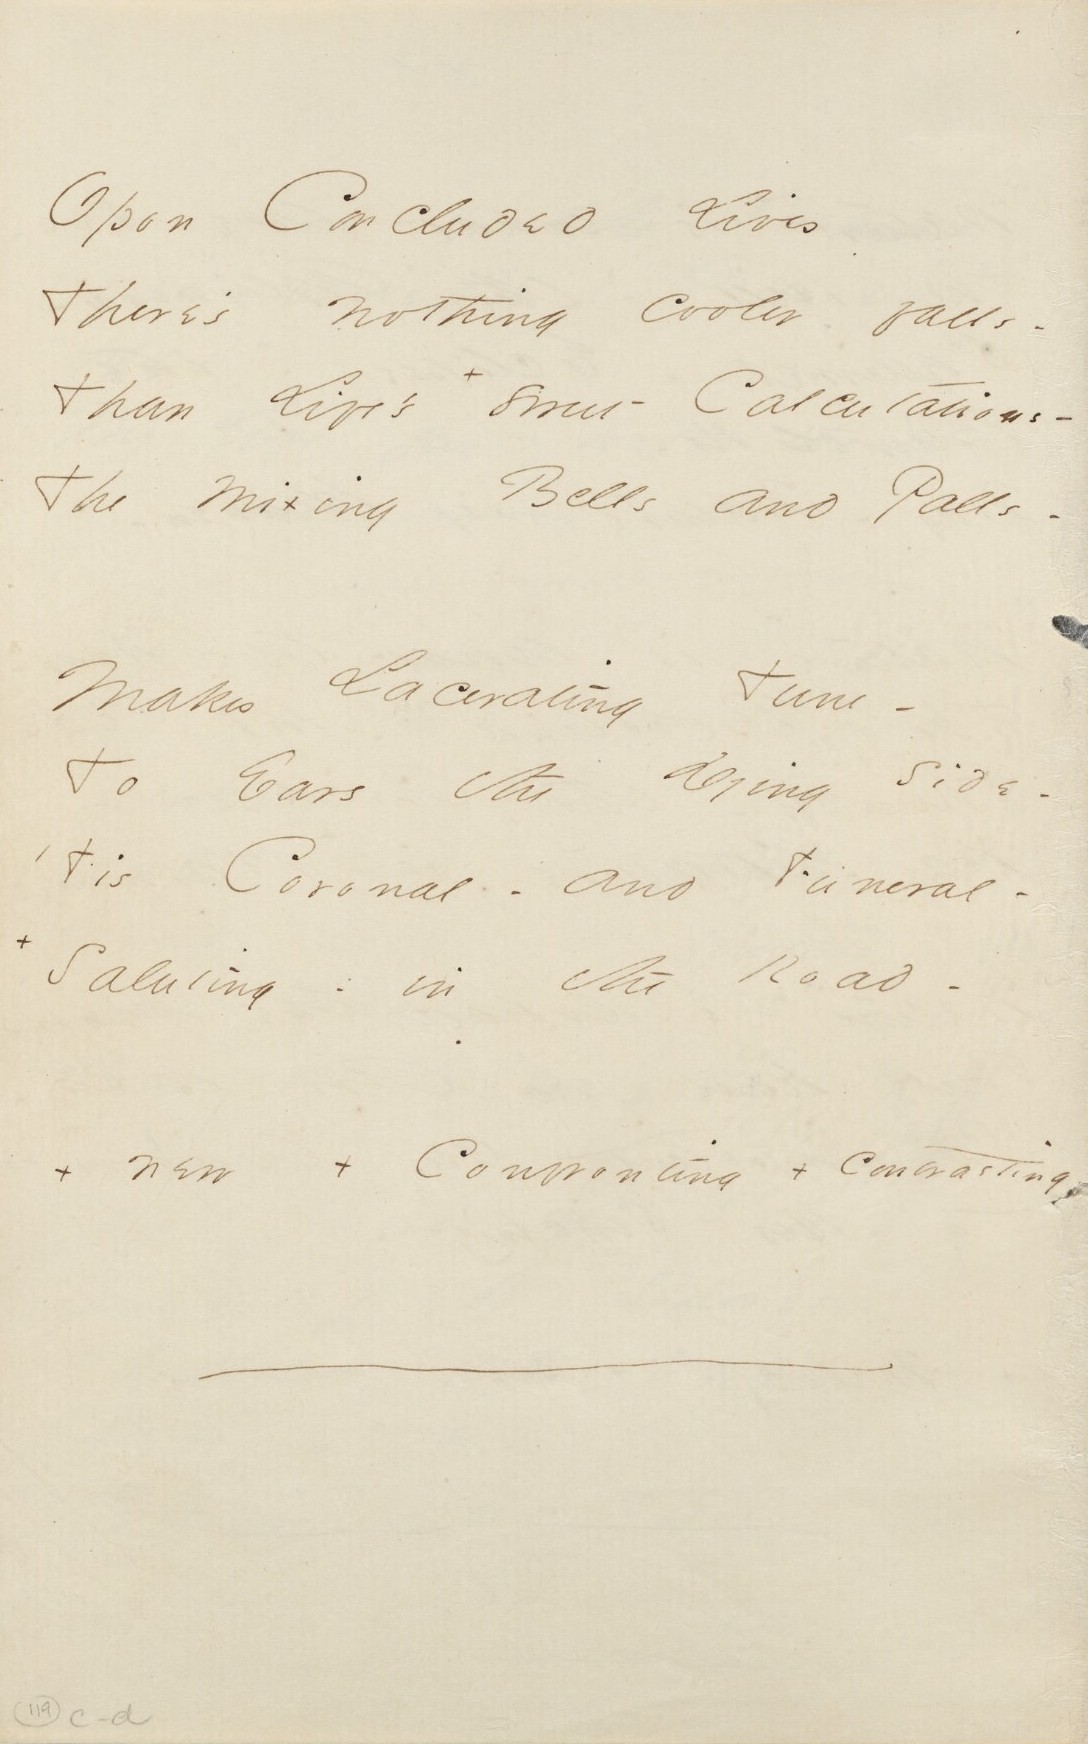 Opon Concluded Lives
There's nothing cooler falls -
Than Life's + sweet Calculations -
The mixing Bells and Palls -
Makes Lacerating Tune -
To Ears the Dying side -
'Tis Coronal - and Funeral -
+ Saluting - in the Road -
+ new + Confronting + Contrasting
119 c-d